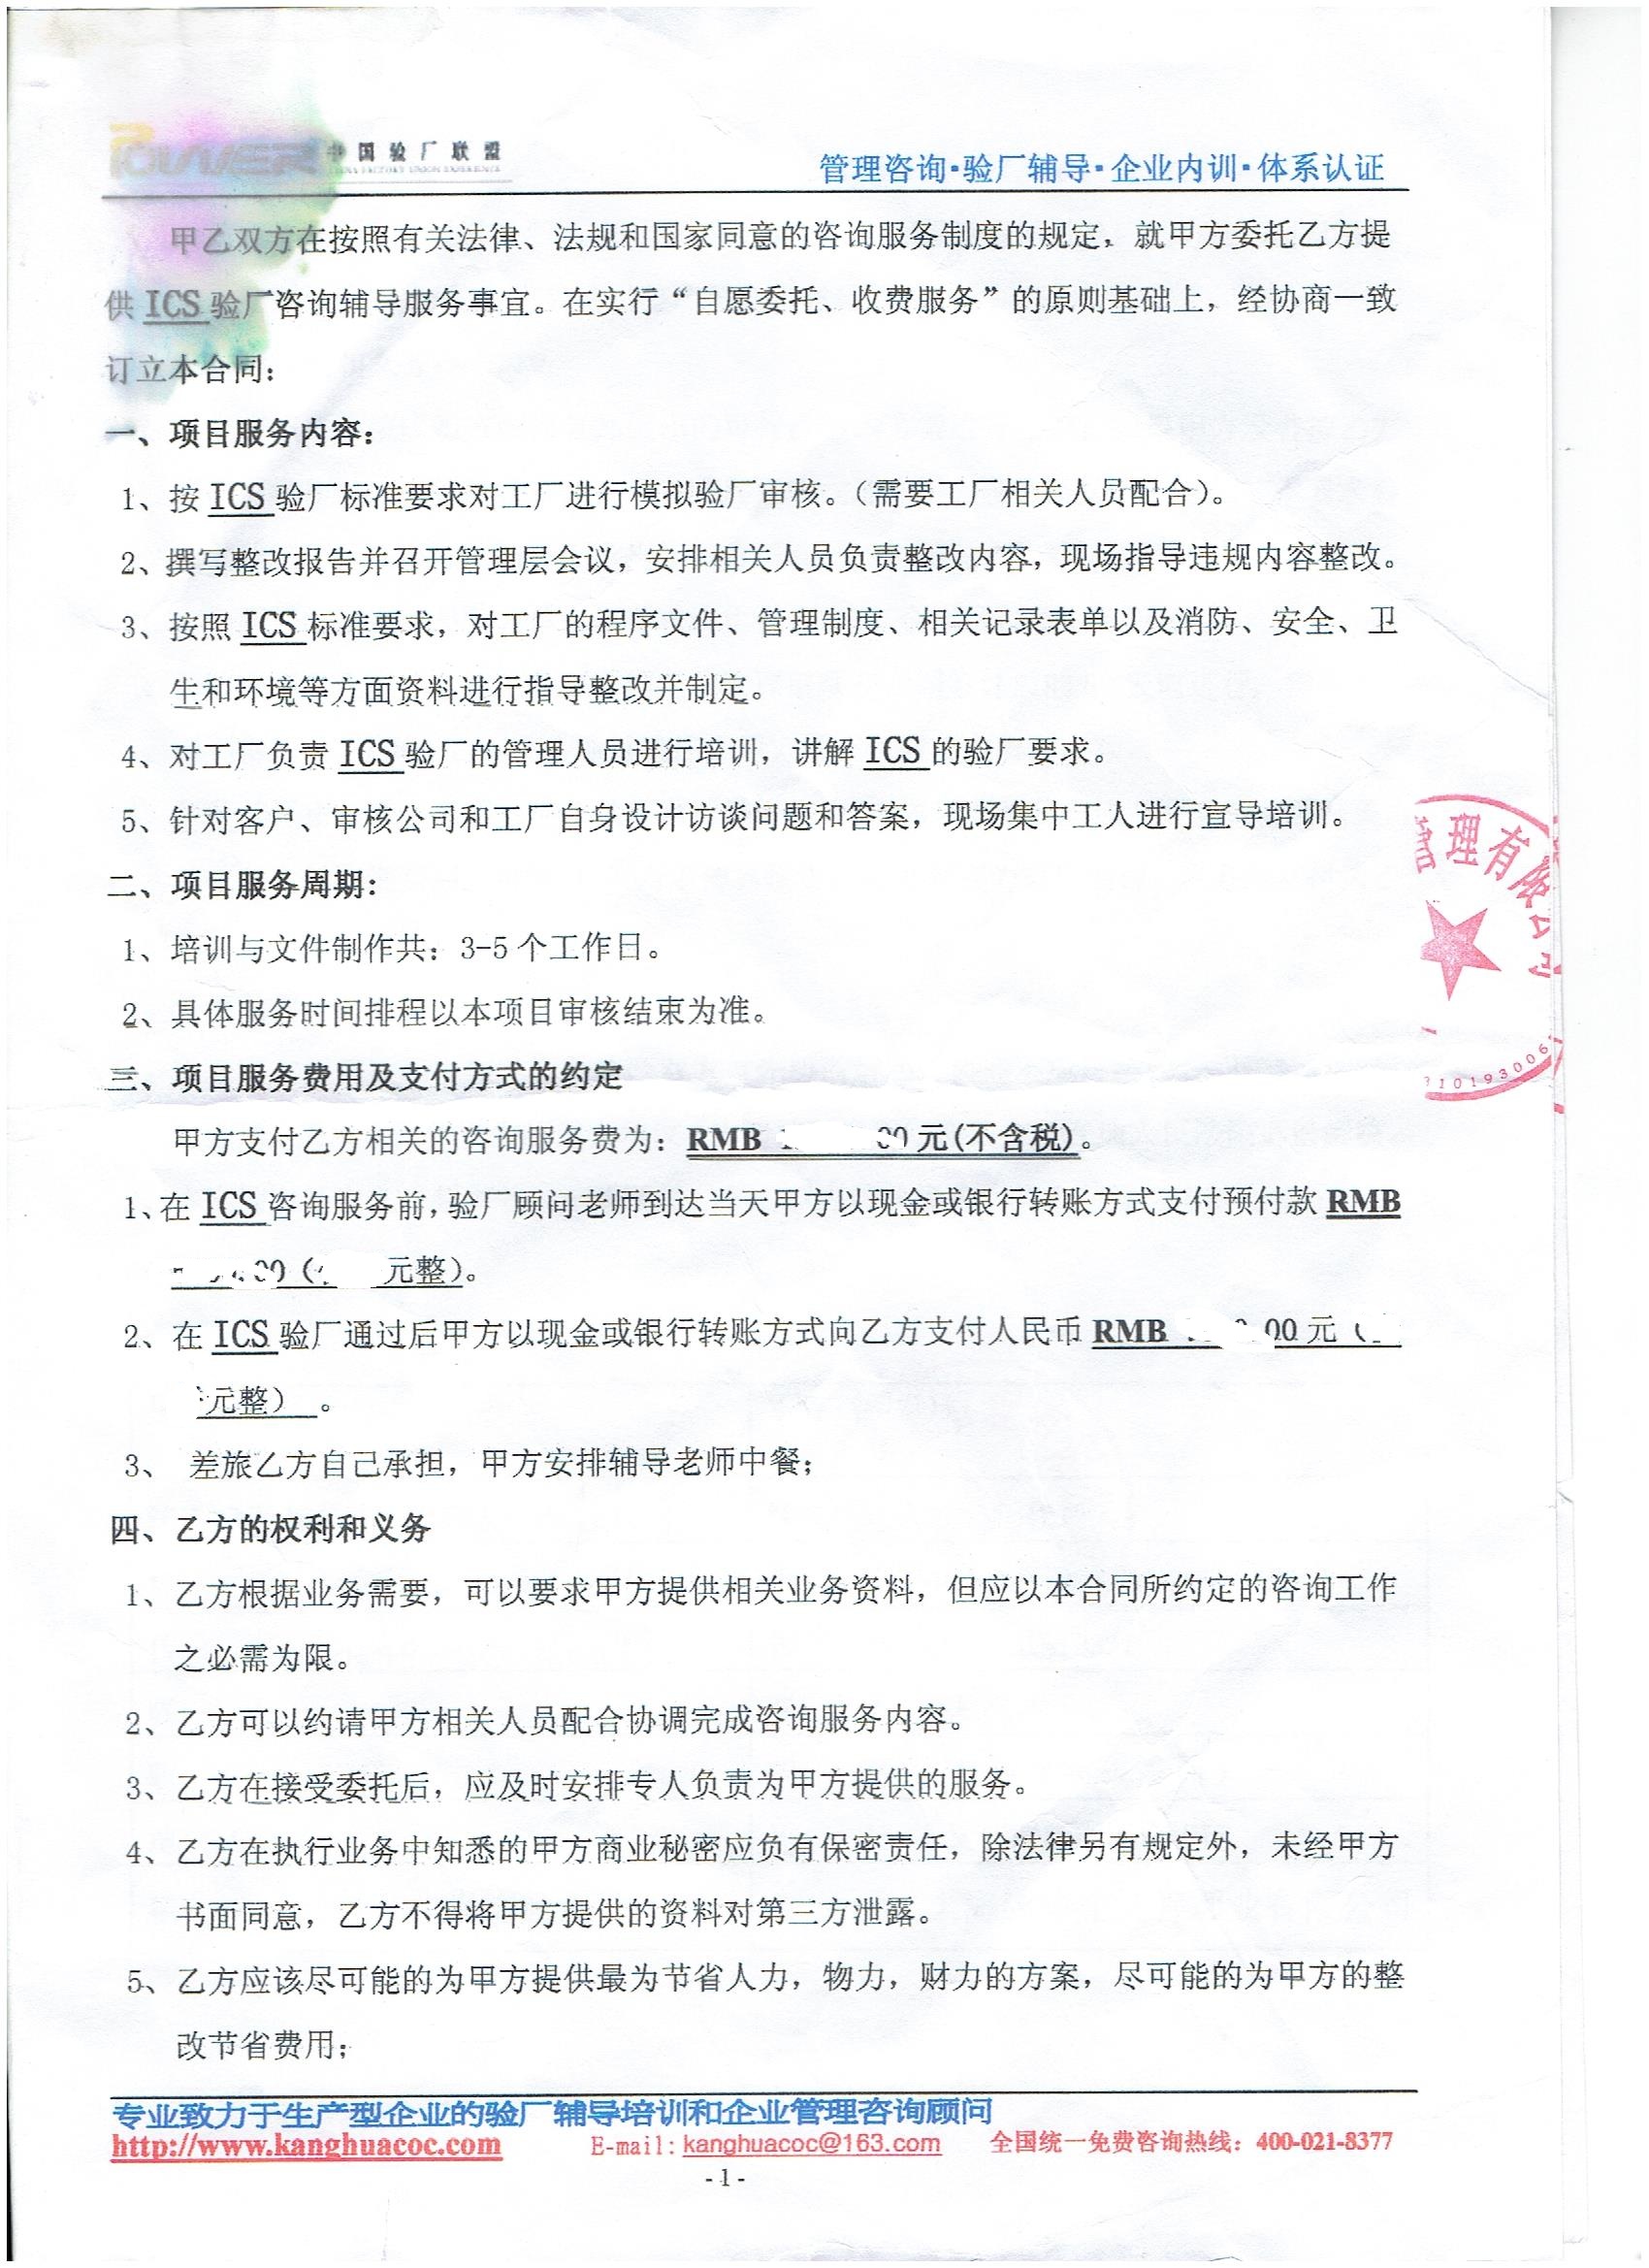 POWER 中国验厂联盟
CHINA FACTORY UNION EXPERIENCE
管理咨询·验厂辅导·企业内训·体系认证
甲乙双方在按照有关法律、法规和国家同意的咨询服务制度的规定，就甲方委托乙方提
供 ICS 验厂咨询辅导服务事宜。在实行“自愿委托、收费服务”的原则基础上，经协商一致
订立本合同：
一、项目服务内容：
1、按 ICS 验厂标准要求对工厂进行模拟验厂审核。（需要工厂相关人员配合）。
2、撰写整改报告并召开管理层会议，安排相关人员负责整改内容，现场指导违规内容整改。
3、按照 ICS 标准要求，对工厂的程序文件、管理制度、相关记录表单以及消防、安全、卫
生和环境等方面资料进行指导整改并制定。
4、对工厂负责 ICS 验厂的管理人员进行培训，讲解 ICS 的验厂要求。
5、针对客户、审核公司和工厂自身设计访谈问题和答案，现场集中工人进行宣导培训。
管理有限公司
310193006
二、项目服务周期：
1、培训与文件制作共：3-5 个工作日。
2、具体服务时间排程以本项目审核结束为准。
三、项目服务费用及支付方式的约定
甲方支付乙方相关的咨询服务费为：RMB 00 元(不含税)。
1、在 ICS 咨询服务前，验厂顾问老师到达当天甲方以现金或银行转账方式支付预付款 RMB
00（ 元整）。
2、在 ICS 验厂通过后甲方以现金或银行转账方式向乙方支付人民币 RMB 00 元（
元整） 。
3、 差旅乙方自己承担，甲方安排辅导老师中餐；
四、乙方的权利和义务
1、乙方根据业务需要，可以要求甲方提供相关业务资料，但应以本合同所约定的咨询工作
之必需为限。
2、乙方可以约请甲方相关人员配合协调完成咨询服务内容。
3、乙方在接受委托后，应及时安排专人负责为甲方提供的服务。
4、乙方在执行业务中知悉的甲方商业秘密应负有保密责任，除法律另有规定外，未经甲方
书面同意，乙方不得将甲方提供的资料对第三方泄露。
5、乙方应该尽可能的为甲方提供最为节省人力，物力，财力的方案，尽可能的为甲方的整
改节省费用；
专业致力于生产型企业的验厂辅导培训和企业管理咨询顾问
http://www.kanghuacoc.com E-mail：kanghuacoc@163.com 全国统一免费咨询热线：400-021-8377
- 1 -